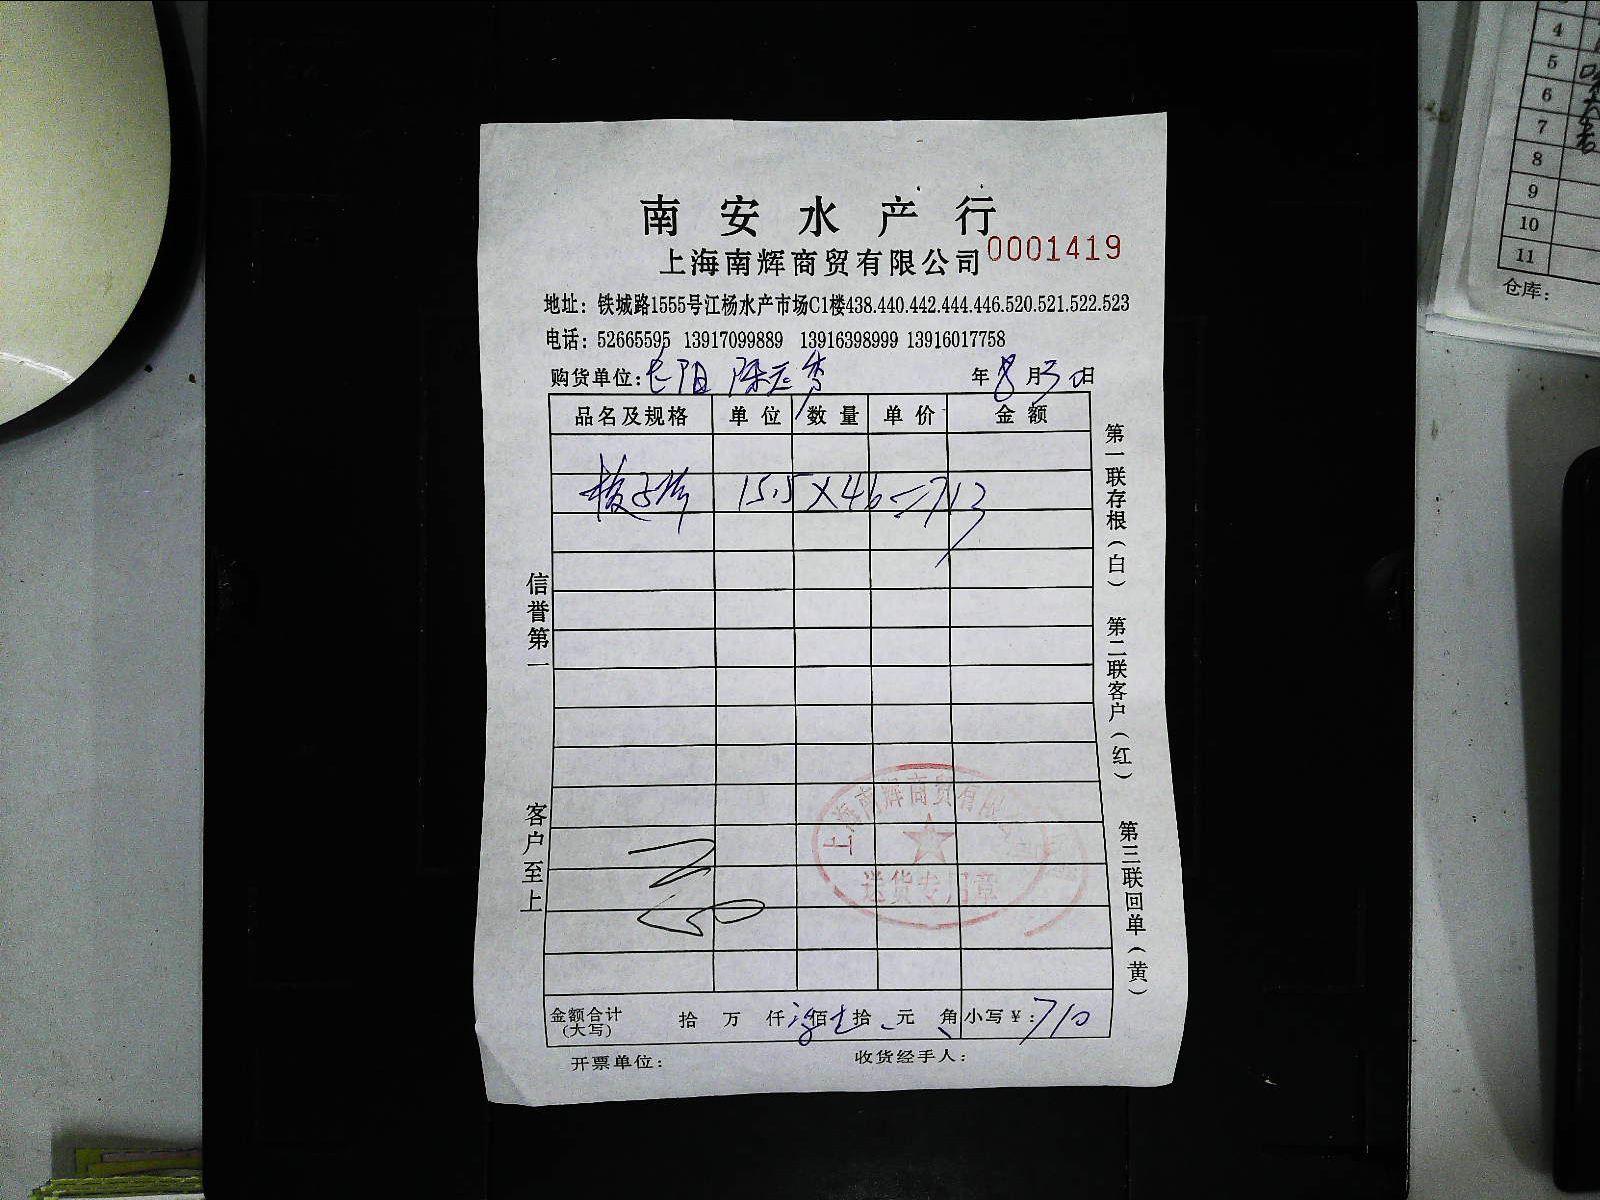 南安水产行
上海南辉商贸有限公司 0001419
地址：铁城路1555号江杨水产市场C1楼438.440.442.444.446.520.521.522.523
电话：52665595 13917099889 13916398999 13916017758
购货单位： 年8月30日
品名及规格 单位 数量 单价 金额
梭子 15.5×46=713
信誉第一
客户至上
第一联存根（白） 第二联客户（红） 第三联回单（黄）
上海南辉商贸有限公司
送货专用章
金额合计（大写） 拾 万 仟 佰 拾 元 角 小写￥：710
开票单位： 收货经手人：
4
5
6
7
8
9
10
11
仓库：